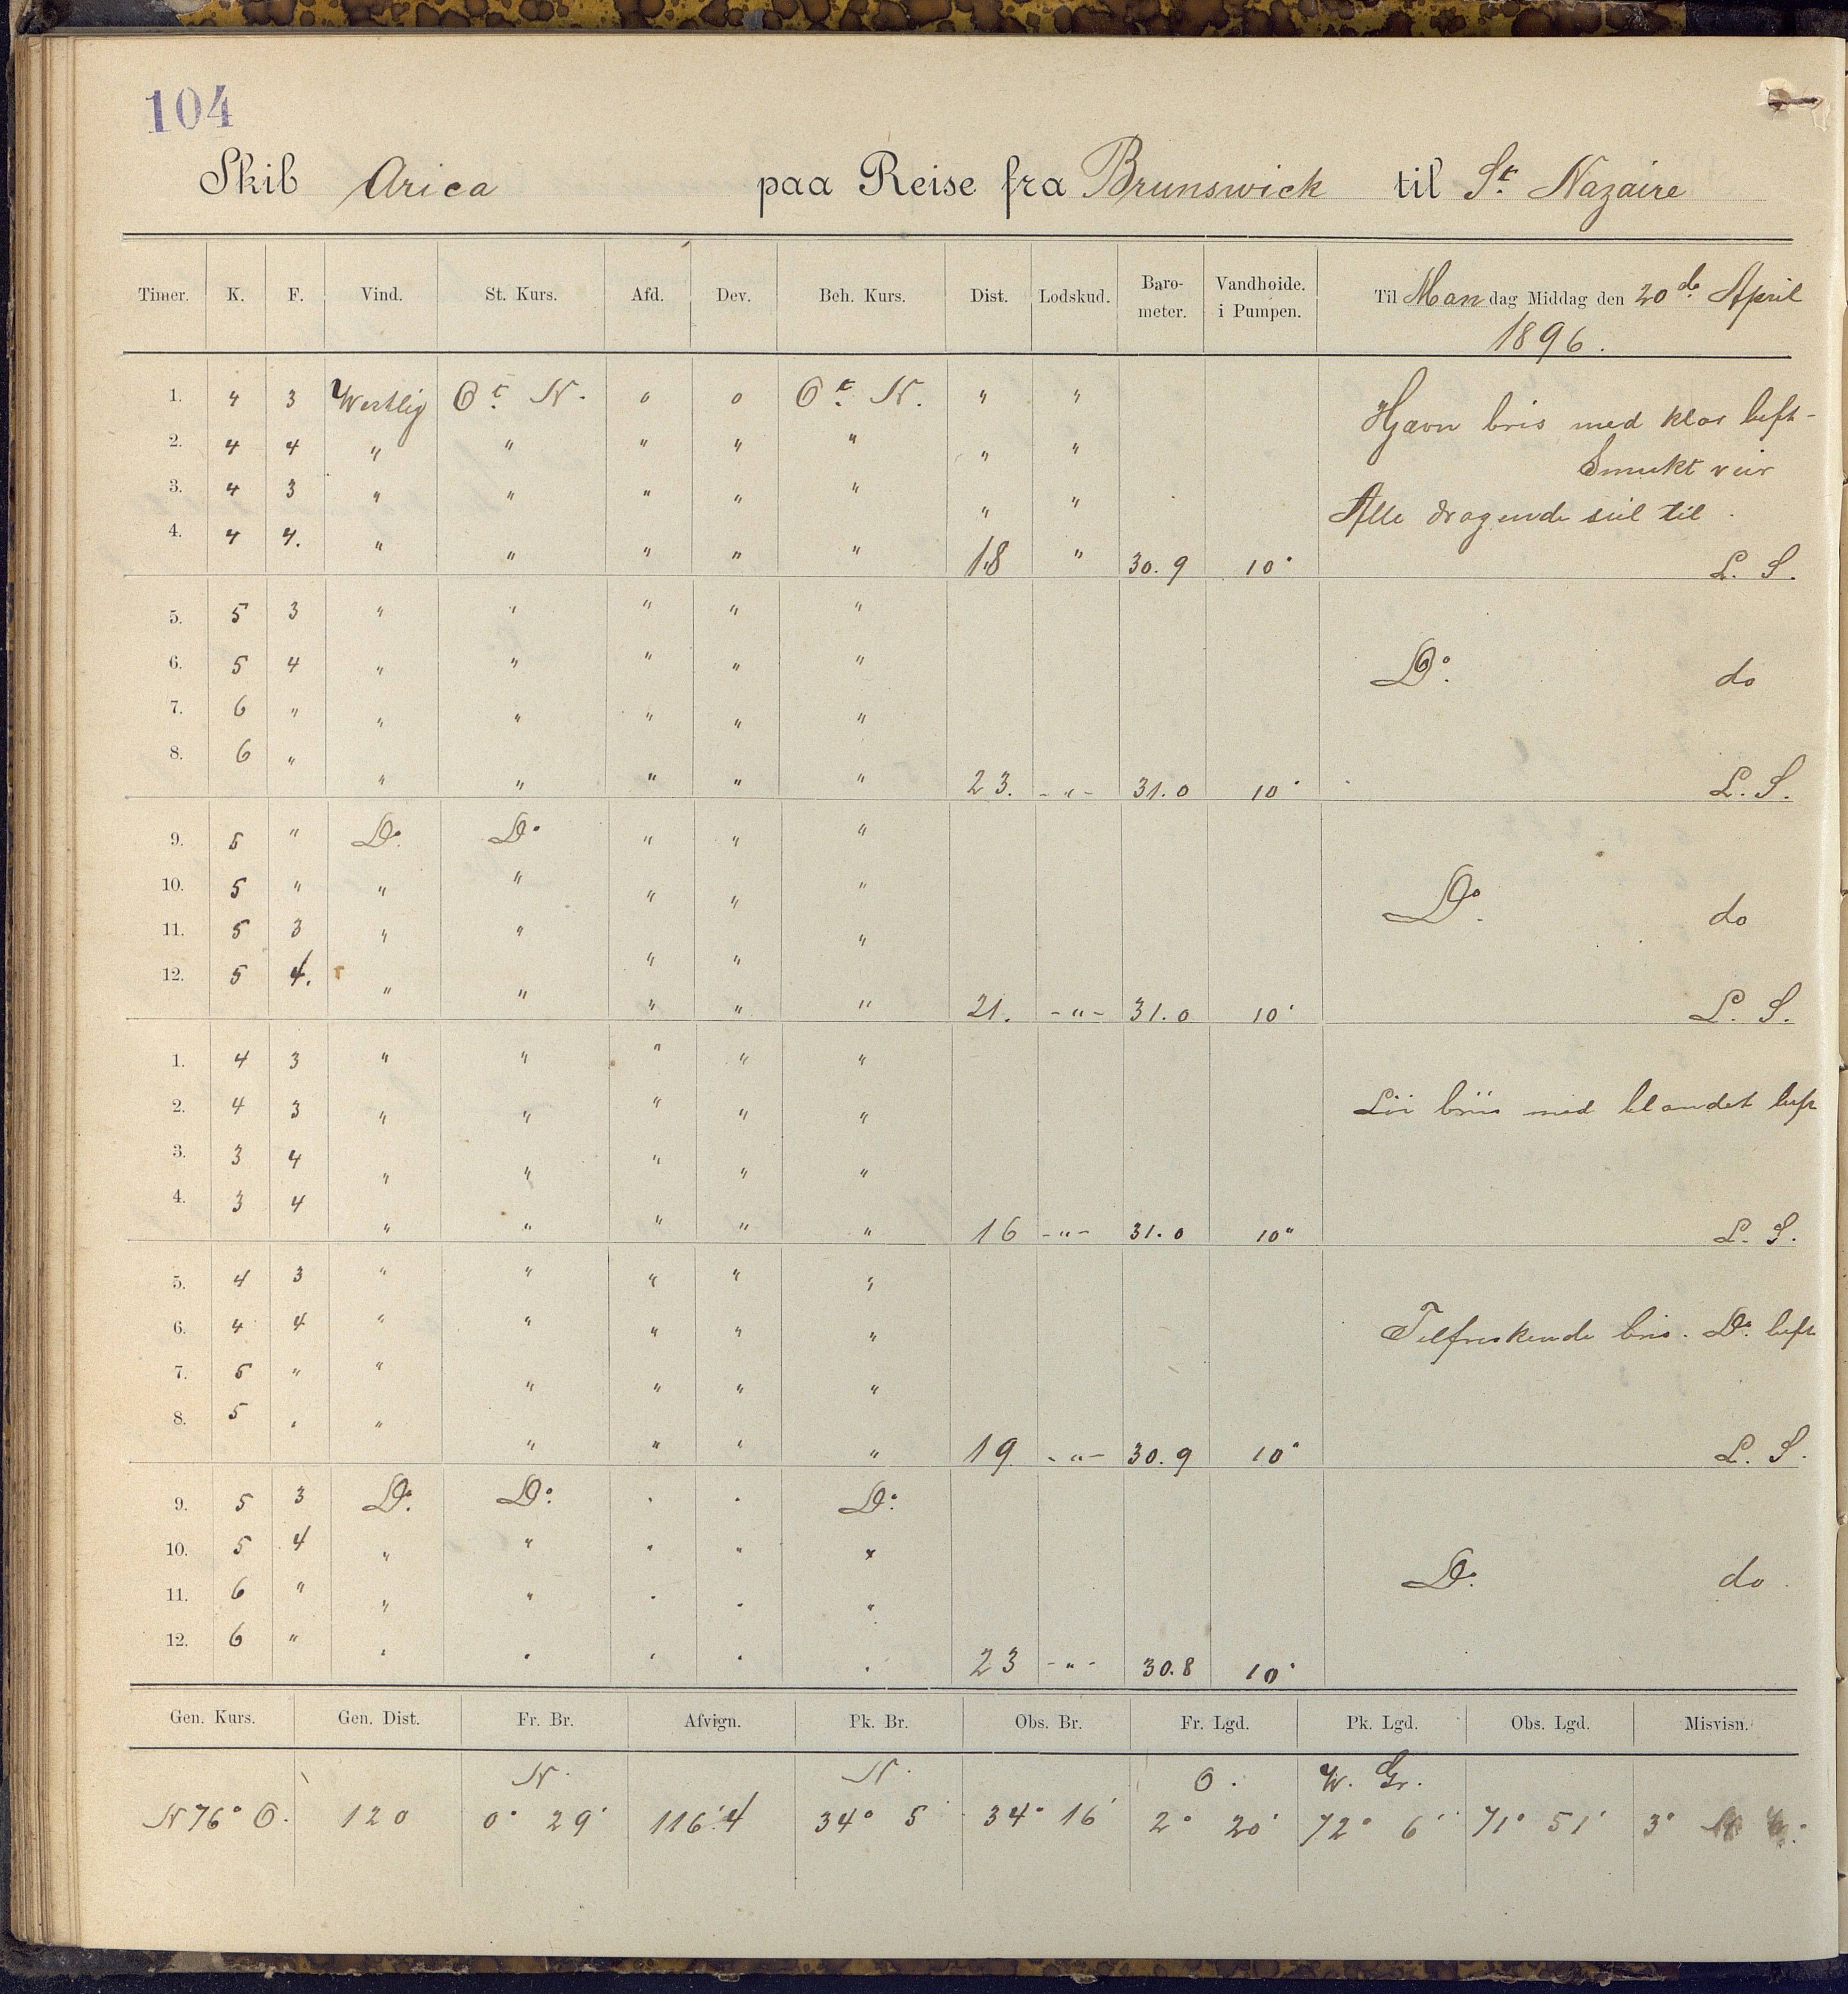 104
Skib Arica paa Reise fra Brunswick til St. Nazaire
Timer. K. F. Vind. St. Kurs. Afd. Dev. Beh. Kurs. Dist. Lodskud. Baro-meter. Vandhøide. i Pumpen. Til Mandag Middag den 20de April
1896.
1. 4 3 Westlig Ot. N. 0 0 Ot. N. " " Hjævn bris med klar luft-
2. 4 4 " " " " " " " Smukt veir
3. 4 3 " " " " " " " Alle dragende seil til.
4. 4 4. " " " " " 18 " 30.9 10" L. S.
5. 5 3 " " " " "
6. 5 4 " " " " " Do. do
7. 6 " " " " " "
8. 6 " " " " " " 23. -"- 31.0 10" L. S.
9. 5 " Do. Do " " "
10. 5 " " " " " " Do. do
11. 5 3 " " " " "
12. 5 4. " " " " " 21. -"- 31.0 10" L. S.
1. 4 3 " " " " "
2. 4 3 " " " " " Löi briis med blandet luft
3. 3 4 " " " " "
4. 3 4 " " " " " 16 -"- 31.0 10" L. S.
5. 4 3 " " " " "
6. 4 4 " " " " " Tilfriskende bris. Do. luft
7. 5 " " " " " "
8. 5 " " " " " " 19 -"- 30.9 10" L. S.
9. 5 3 Do. Do. " " Do.
10. 5 4 " " " " " Do. do.
11. 6 " " " " " "
12. 6 " " " " " " 23 -"- 30.8 10"
Gen. Kurs. Gen. Dist. Fr. Br. Afvign. Pk. Br. Obs. Br. Fr. Lgd. Pk. Lgd. Obs. Lgd. Misvisn.
N. N. O. W. Gr.
N 76° O. 120 0° 29' 116'.4 34° 5' 34° 16' 2° 20' 72° 6' 71° 51' 3°